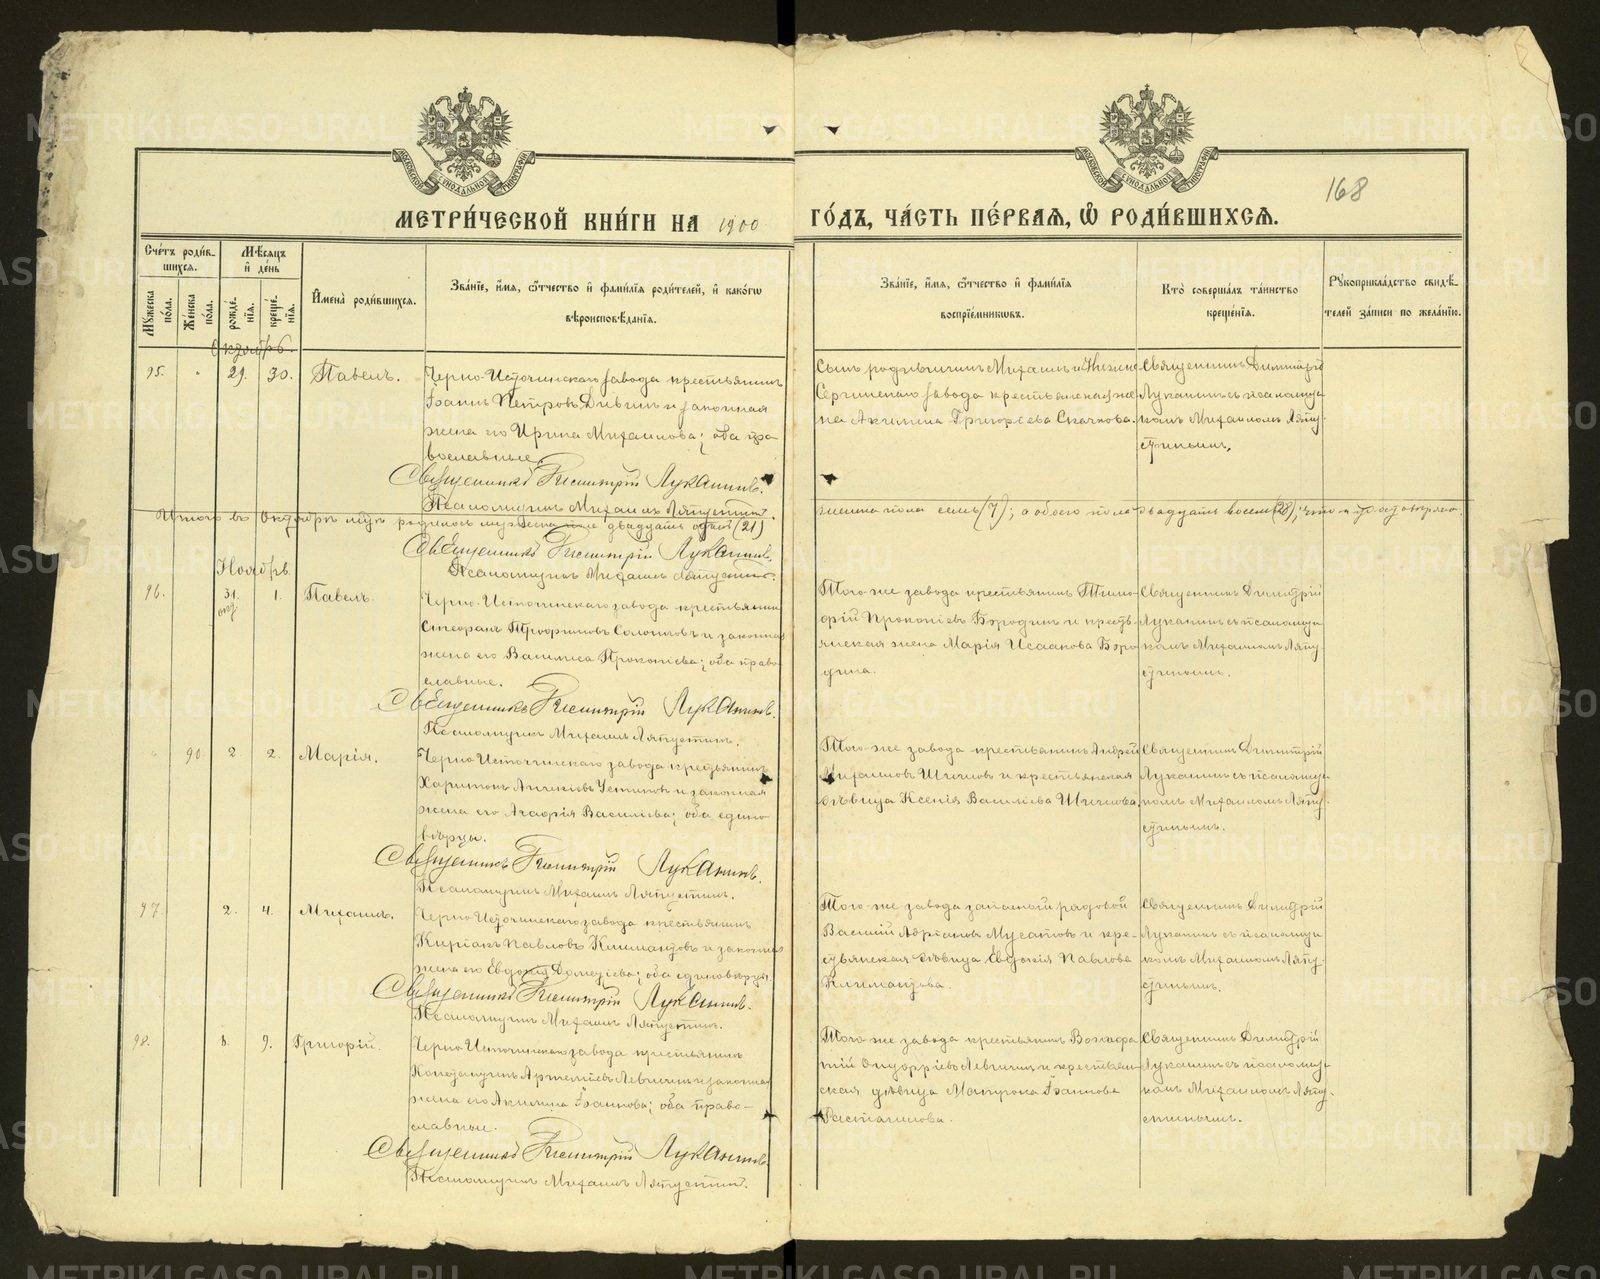 168
МЕТРИ́ЧЕСКОЙ КНИ́ГИ НА 1900 ГО́ДЪ, ЧА́СТЬ ПЕ́РВАЯ, Ѡ РОДИ́ВШИХСЯ.
Сче́тъ роди́в-
шихся.
Мѣсяцъ
и день
Му́жеска
по́ла.
Же́нска
по́ла.
рожде́-
нія.
креще́-
нія.
Имена̀ роди́вшихся.
Зва́ніе, и́мя, ѻ́тчество и фами́лія роди́телей, и како́гѡ
вѣроисповѣ́данія.
Зва́ніе, и́мя, ѻ́тчество и фами́лія
воспріе́мниковъ.
Кто̀ соверша́лъ та́инство
креще́нія.
Рукоприкла́дство свидѣ́-
телей за́писи по жела́нію.
Октябрь.
95. " 29. 30. Павелъ.
Черно-Источинскаго завода крестьянинъ
Іоаннъ Петровъ и законная
жена его Ирина Михаилова; оба пра-
вославные.
Священникъ Димитрій Луканинъ.
Псаломщикъ Михаилъ Ляпустинъ.
Сынъ Михаилъ и Нижне
Сергинскаго завода крестьянская же-
на Акилина Григорьева Скачкова.
Священникъ Димитрій
Луканинъ съ псаломщи-
комъ Михаиломъ Ляпу-
стинымъ.
Итого въ Октябрѣ мцѣ родилось мужеска пола двадцать одинъ (21)
женска пола семь (7); а обоего пола двадцать восемь (28);
Священникъ Димитрій Луканинъ.
Псаломщикъ Михаилъ Ляпустинъ.
Ноябрь
96. 31. окт. 1. Павелъ.
Черно-Источинскаго завода крестьянинъ
Стефанъ Трофимовъ и законная
жена его Василиса Прокопіева; оба право-
славные.
Священникъ Димитрій Луканинъ.
Псаломщикъ Михаилъ Ляпустинъ.
Того-же завода крестьянинъ Тимо-
фій Прокопіевъ Бородинъ и кресть-
янская жена Марія Исаакова Боро-
дина.
Священникъ Димитрій
Луканинъ съ псаломщи-
комъ Михаиломъ Ляпу-
стинымъ.
" 90. 2. 2. Марія.
Черно-Источинскаго завода крестьянинъ
Харитонъ Устиновъ и законная
жена его Агафія Василіева; оба едино-
вѣрцы.
Священникъ Димитрій Луканинъ.
Псаломщикъ Михаилъ Ляпустинъ.
Того-же завода крестьянинъ Андрей
Михаиловъ Шишовъ и крестьянская
дѣвица Ксенія Василіева Шишова.
Священникъ Димитрій
Луканинъ съ псаломщи-
комъ Михаиломъ Ляпу-
стинымъ.
97. 2. 4. Михаилъ.
Черно-Источинскаго завода крестьянинъ
Киріакъ Павловъ Климанцовъ и законная
жена его Евдокія Дометіева; оба единовѣрцы.
Священникъ Димитрій Луканинъ.
Псаломщикъ Михаилъ Ляпустинъ.
Того-же завода запасный рядовой
Василій Адріановъ Мусатовъ и кре-
стьянская дѣвица Евдокія Павлова
Климанцова.
Священникъ Димитрій
Луканинъ съ псаломщи-
комъ Михаиломъ Ляпу-
стинымъ.
98. 8. 9. Григорій.
Черно-Источинскаго завода крестьянинъ
Константинъ Артеміевъ Левшинъ и законная
жена его Акилина Іоаннова; оба право-
славные.
Священникъ Димитрій Луканинъ.
Псаломщикъ Михаилъ Ляпустинъ.
Того-же завода крестьянинъ
Левшинъ и крестьян-
ская дѣвица Матрона Іоаннова
Священникъ Димитрій
Луканинъ съ псаломщи-
комъ Михаиломъ Ляпу-
стинымъ.
METRIKI.GASO-URAL.RU